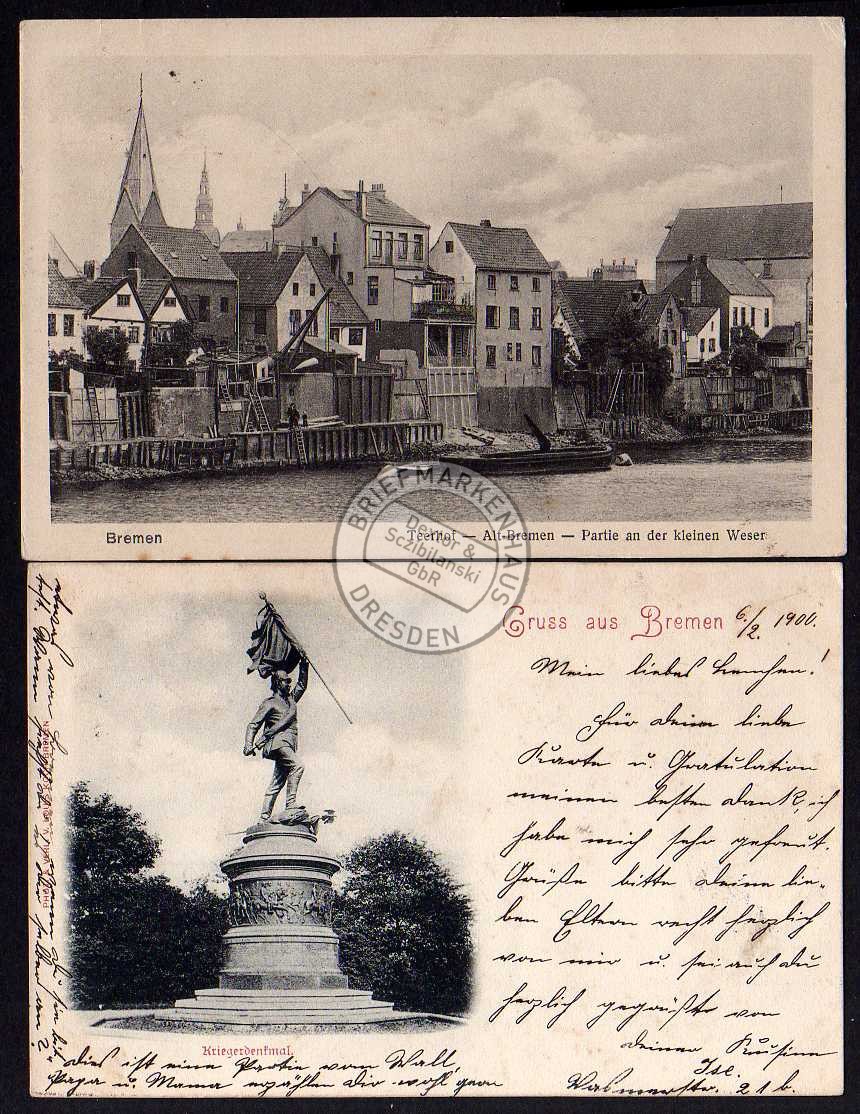 Bremen
Teerhof — Alt-Bremen — Partie an der kleinen Weser
BRIEFMARKENHAUS
Dexor &
Sczibilanski
GbR
DRESDEN
Gruss aus Bremen 6./2. 1900.
Mein liebes !
Für deine liebe
Karte u. Gratulation
meinen besten Dank, ich
habe mich sehr gefreut.
Grüße bitte deine lie-
ben Eltern recht herzlich
von mir u. sei auch du
herzlich gegrüßt von
deiner Kusine
Ise.
21b.
Kriegerdenkmal.
Dies ist eine Partie vom Wall,
Papa u. Mama erzählen Dir wohl gern